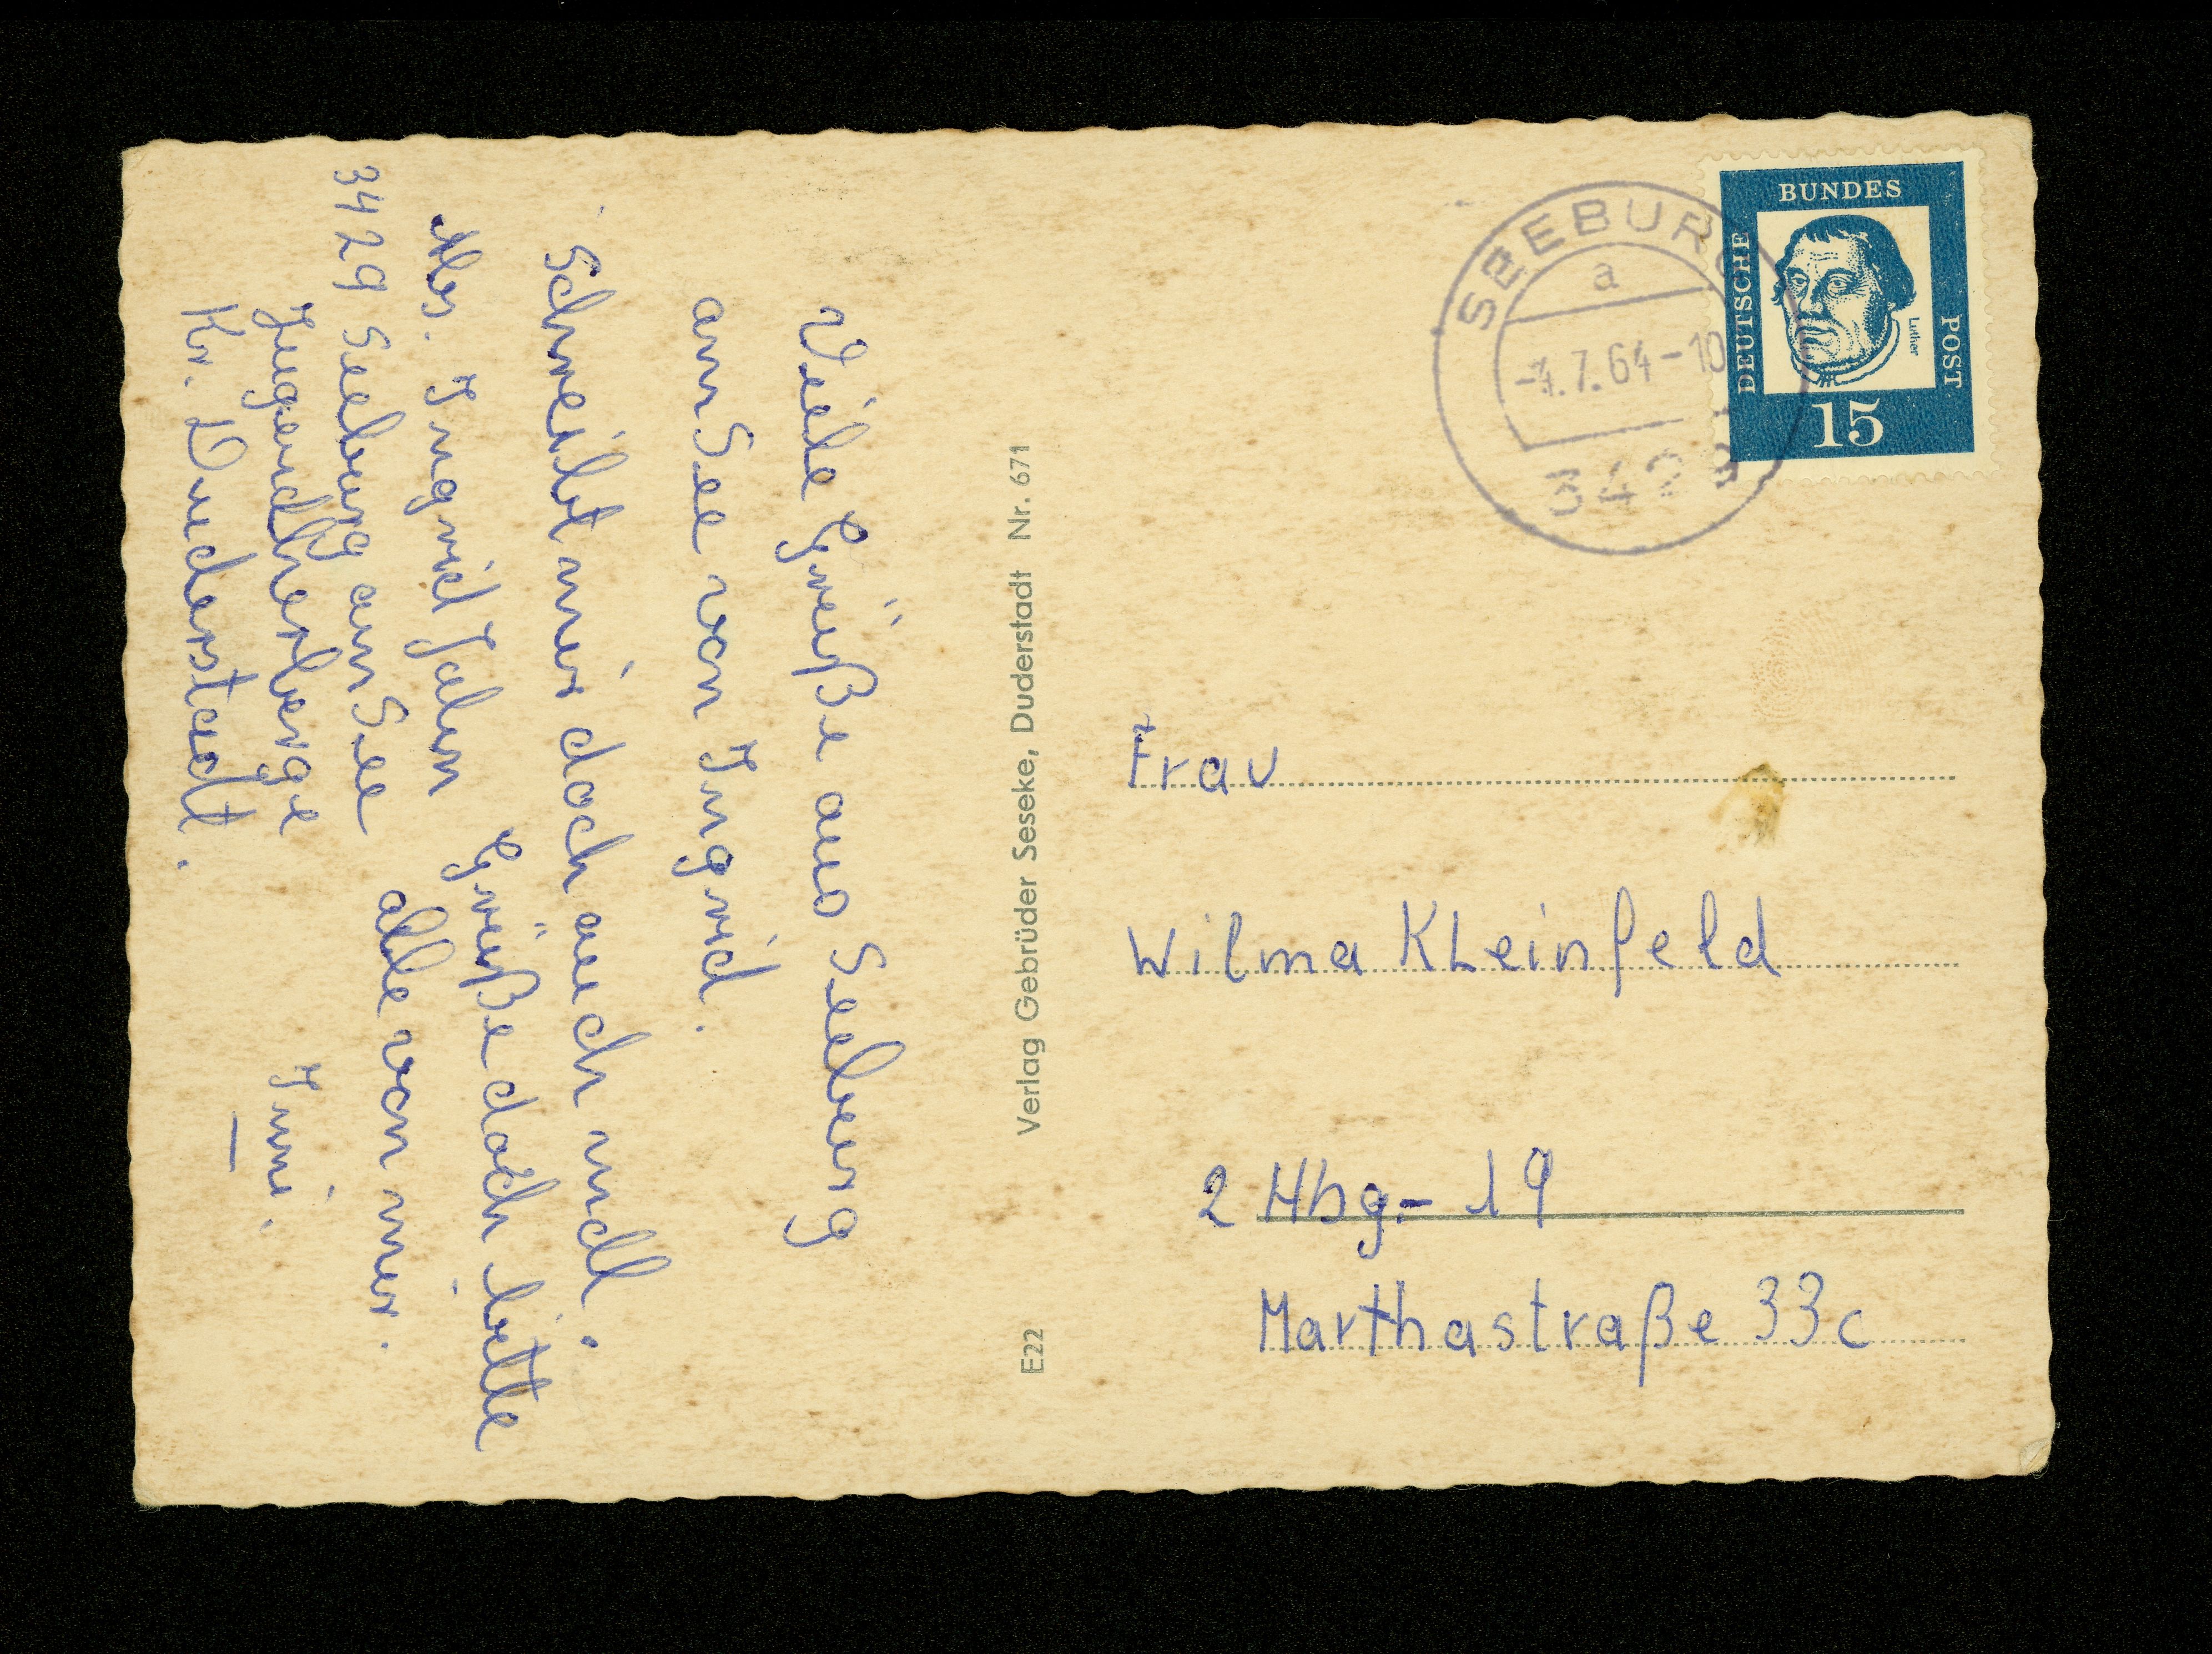 Viele Grüße aus Seeburg
am See von Ingrid.
Schreibt mir doch auch mal!
Abs. Ingrid Jahn
3429 Seeburg am See
Jugendherberge
Kr. Duderstadt.
Grüße doch bitte
alle von mir.
Immi.
Verlag Gebrüder Seseke, Duderstadt Nr. 671
E22
SEEBURG
a
7.64-10
3429
DEUTSCHE BUNDES POST
Luther
15
Frau
Wilma KLeinfeld
2 Hbg.- 19
Marthastraße 33c